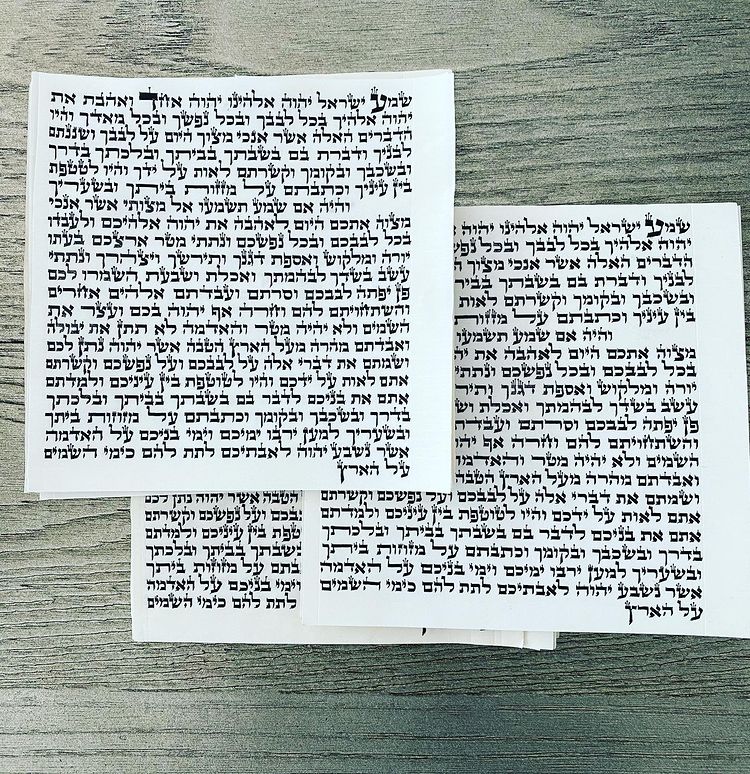 שמע ישראל יהוה אלהינו יהוה אחד ואהבת את
יהוה אלהיך בכל לבבך ובכל נפשך ובכל מאדך והיו
הדברים האלה אשר אנכי מצוך היום על לבבך ושננתם
לבניך ודברת בם בשבתך בביתך ובלכתך בדרך
ובשכבך ובקומך וקשרתם לאות על ידך והיו לטטפת
בין עיניך וכתבתם על מזזות ביתך ובשעריך
והיה אם שמע תשמעו אל מצותי אשר אנכי
מצוה אתכם היום לאהבה את יהוה אלהיכם ולעבדו
בכל לבבכם ובכל נפשכם ונתתי מטר ארצכם בעתו
יורה ומלקוש ואספת דגנך ותירשך ויצהרך ונתתי
עשב בשדך לבהמתך ואכלת ושבעת השמרו לכם
פן יפתה לבבכם וסרתם ועבדתם אלהים אחרים
והשתחויתם להם וחרה אף יהוה בכם ועצר את
השמים ולא יהיה מטר והאדמה לא תתן את יבולה
ואבדתם מהרה מעל הארץ הטבה אשר יהוה נתן לכם
ושמתם את דברי אלה על לבבכם ועל נפשכם וקשרתם
אתם לאות על ידכם והיו לטוטפת בין עיניכם ולמדתם
אתם את בניכם לדבר בם בשבתך בביתך ובלכתך
בדרך ובשכבך ובקומך וכתבתם על מזוזות ביתך
ובשעריך למען ירבו ימיכם וימי בניכם על האדמה
אשר נשבע יהוה לאבתיכם לתת להם כימי השמים
על הארץ
שמע ישראל יהוה אלהינו יהוה
יהוה אלהיך בכל לבבך ובכל
הדברים האלה אשר אנכי מצוך
לבניך ודברת בם בשבתך
ובשכבך ובקומך וקשרתם לאות
בין עיניך וכתבתם על מזזות
והיה אם שמע תשמעו
מצוה אתכם היום לאהבה את
בכל לבבכם ובכל נפשכם ונתתי
יורה ומלקוש ואספת דגנך
עשב בשדך לבהמתך ואכלת
פן יפתה לבבכם וסרתם
והשתחויתם להם וחרה אף
השמים ולא יהיה מטר
ואבדתם מהרה מעל הארץ הטבה
ושמתם את דברי אלה על לבבכם ועל נפשכם וקשרתם
אתם לאות על ידכם והיו לטוטפת בין עיניכם ולמדתם
אתם את בניכם לדבר בם בשבתך בביתך ובלכתך
בדרך ובשכבך ובקומך וכתבתם על מזוזות ביתך
ובשעריך למען ירבו ימיכם וימי בניכם על האדמה
אשר נשבע יהוה לאבתיכם לתת להם כימי השמים
על הארץ
הטבה אשר יהוה נתן לכם
ועל נפשכם וקשרתם
בין עיניכם ולמדתם
בביתך ובלכתך
על מזוזות ביתך
וימי בניכם על האדמה
לתת להם כימי השמים